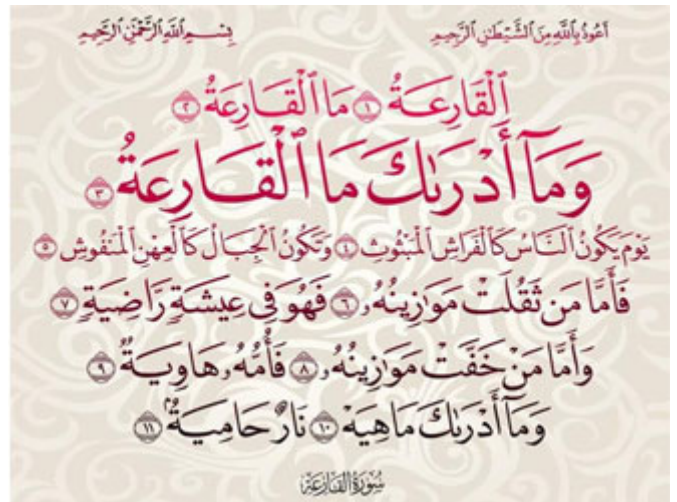 أَعُوذُ بِٱللَّهِ مِنَ ٱلشَّيْطَٰنِ ٱلرَّجِيمِ بِسْمِ ٱللَّهِ ٱلرَّحْمَٰنِ ٱلرَّحِيمِ
ٱلْقَارِعَةُ ١ مَا ٱلْقَارِعَةُ ٢
وَمَآ أَدْرَىٰكَ مَا ٱلْقَارِعَةُ ٣
يَوْمَ يَكُونُ ٱلنَّاسُ كَٱلْفَرَاشِ ٱلْمَبْثُوثِ ٤ وَتَكُونُ ٱلْجِبَالُ كَٱلْعِهْنِ ٱلْمَنفُوشِ ٥
فَأَمَّا مَن ثَقُلَتْ مَوَٰزِينُهُۥ ٦ فَهُوَ فِى عِيشَةٍ رَّاضِيَةٍ ٧
وَأَمَّا مَنْ خَفَّتْ مَوَٰزِينُهُۥ ٨ فَأُمُّهُۥ هَاوِيَةٌ ٩
وَمَآ أَدْرَىٰكَ مَا هِيَهْ ١٠ نَارٌ حَامِيَةٌۢ ١١
سُورَةُ القَارِعَةِ